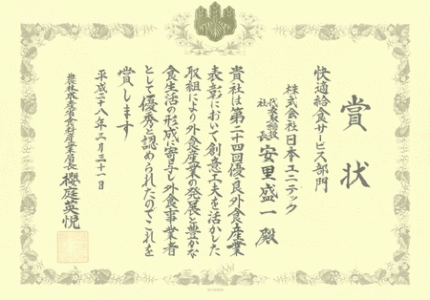 賞状
快適給食サービス部門
株式会社日本ユニテック
代表取締役
社長
安里盛一殿
貴社は第二十四回優良外食産業
表彰において創意工夫を活かした
取組により外食産業の発展と豊かな
食生活の形成に寄与し外食事業者
として優秀と認められたのでこれを
賞します
平成二十八年三月三十一日
農林水産省食料産業局長 櫻庭英悦